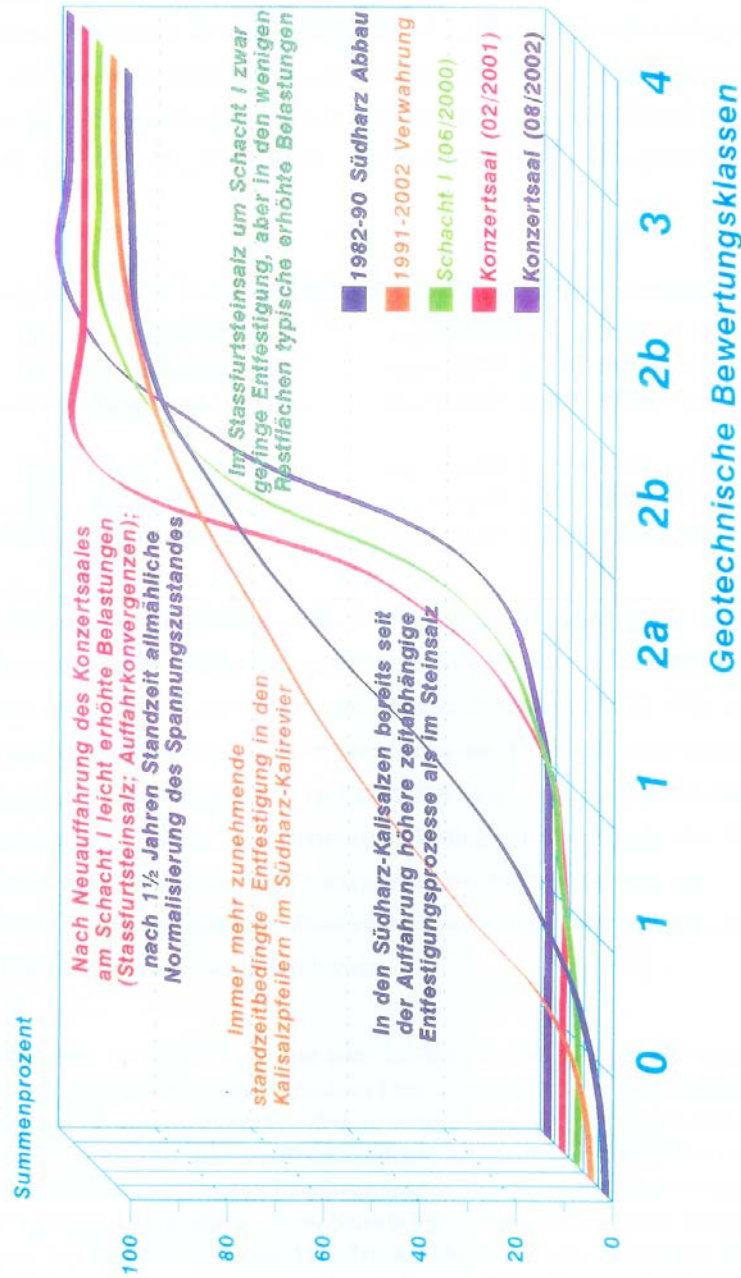 Summenprozent
100
80
60
40
20
0
Nach Neuauffahrung des Konzertsaales
am Schacht I leicht erhöhte Belastungen
(Stassfurtsteinsalz; Auffahrkonvergenzen);
nach 1½ Jahren Standzeit allmähliche
Normalisierung des Spannungszustandes
Immer mehr zunehmende
standzeitbedingte Entfestigung in den
Kalisalzpfeilern im Südharz-Kalirevier
In den Südharz-Kalisalzen bereits seit
der Auffahrung höhere zeitabhängige
Entfestigungsprozesse als im Steinsalz
Im Stassfurtsteinsalz um Schacht I zwar
geringe Entfestigung, aber in den wenigen
Restflächen typische erhöhte Belastungen
1982-90 Südharz Abbau
1991-2002 Verwahrung
Schacht I (06/2000)
Konzertsaal (02/2001)
Konzertsaal (08/2002)
0
1
1
2a
2b
2b
3
4
Geotechnische Bewertungsklassen